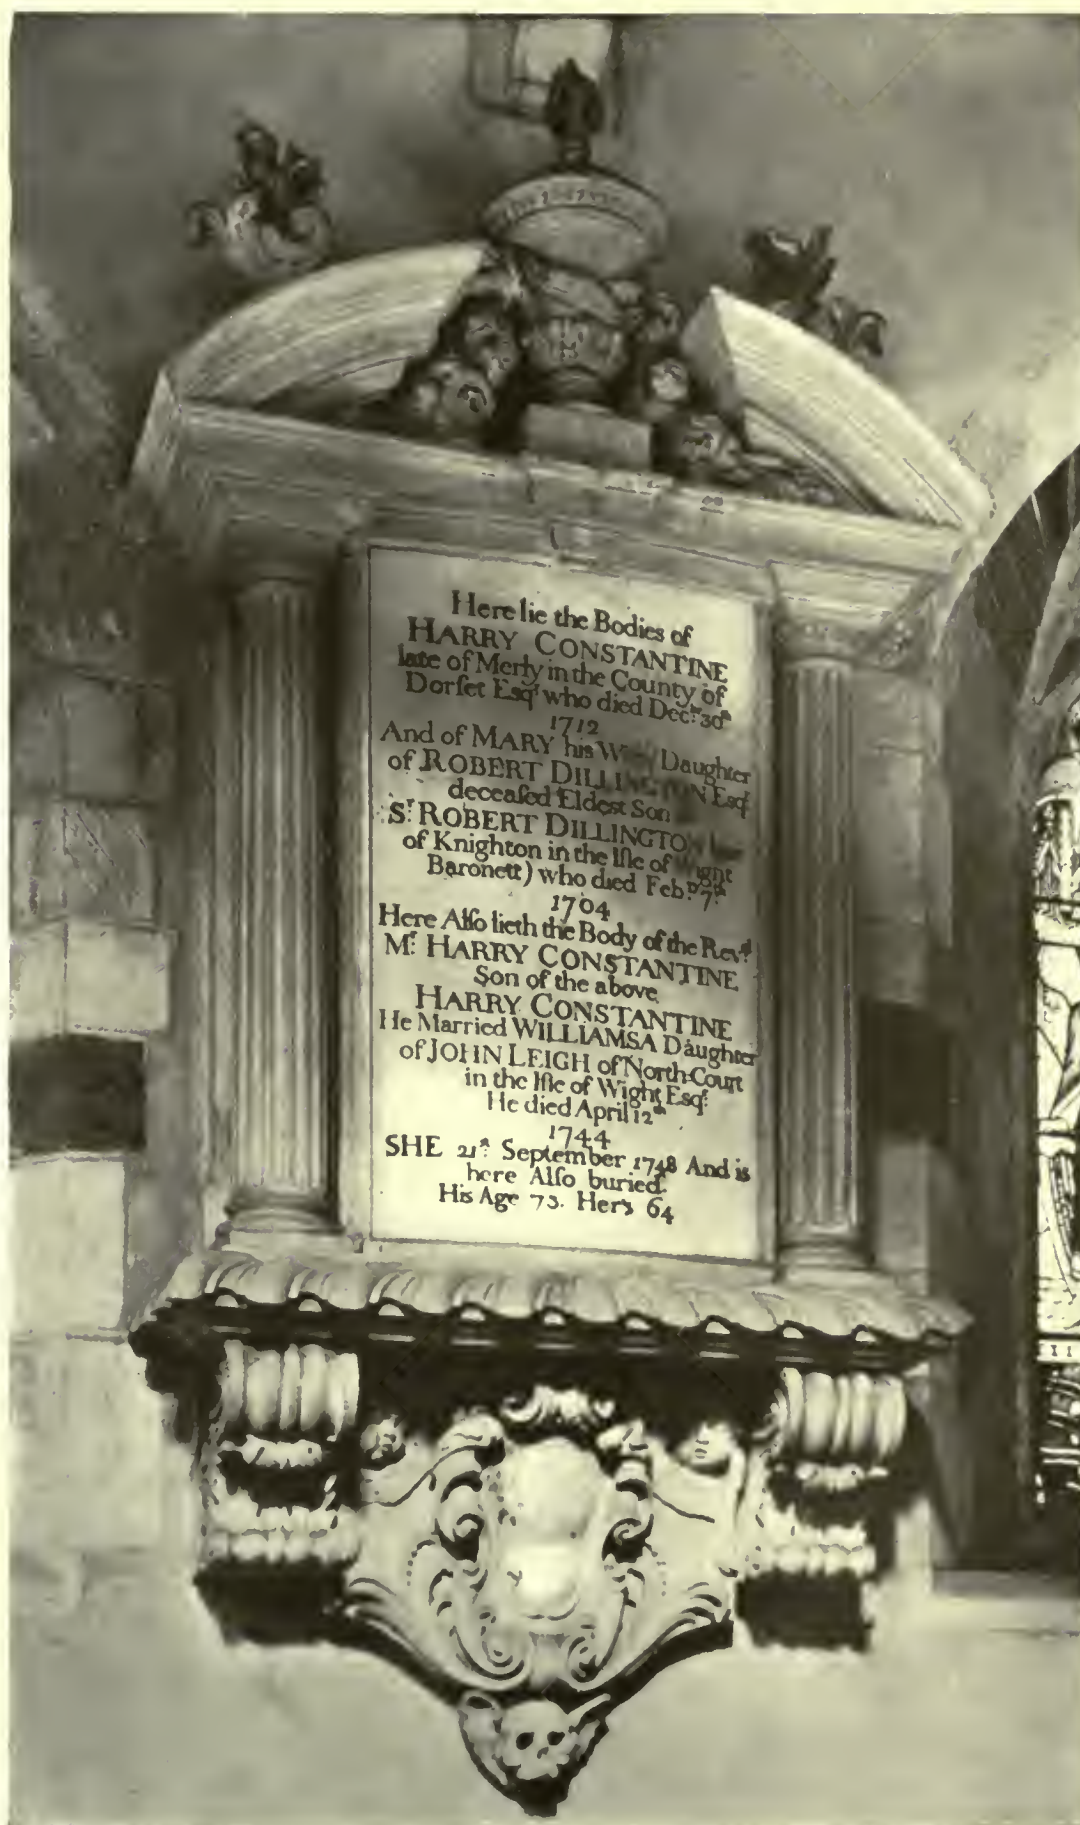 Here lie the Bodies of
HARRY CONSTANTINE
late of Merly in the County of
Dorſet Esqr who died Decbr: 30th
1712
And of MARY his Daughter
of ROBERT DILLINGTON Esqr
deceaſed Eldest Son
Sr. ROBERT DILLINGTON
of Knighton in the Iſle of Wight
Baronett) who died Febry: 7th
1704
Here Alſo lieth the Body of the Revd.
Mr. HARRY CONSTANTINE
Son of the above
HARRY CONSTANTINE
He Married WILLIAMSA Daughter
of JOHN LEIGH of North-Court
in the Iſle of Wight Esqr:
He died April 12th
1744
SHE 21st. September 1748 And is
here Alſo buried.
His Age 73. Hers 64